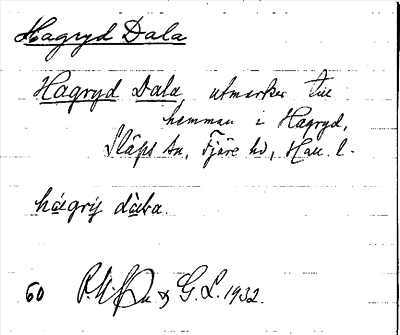 Hagryd Dala
Hagryd Dala utmarker till
hemman i Hagryd,
Släps sn, Fjäre hd, Hall. l.
60 G. L. 1932.